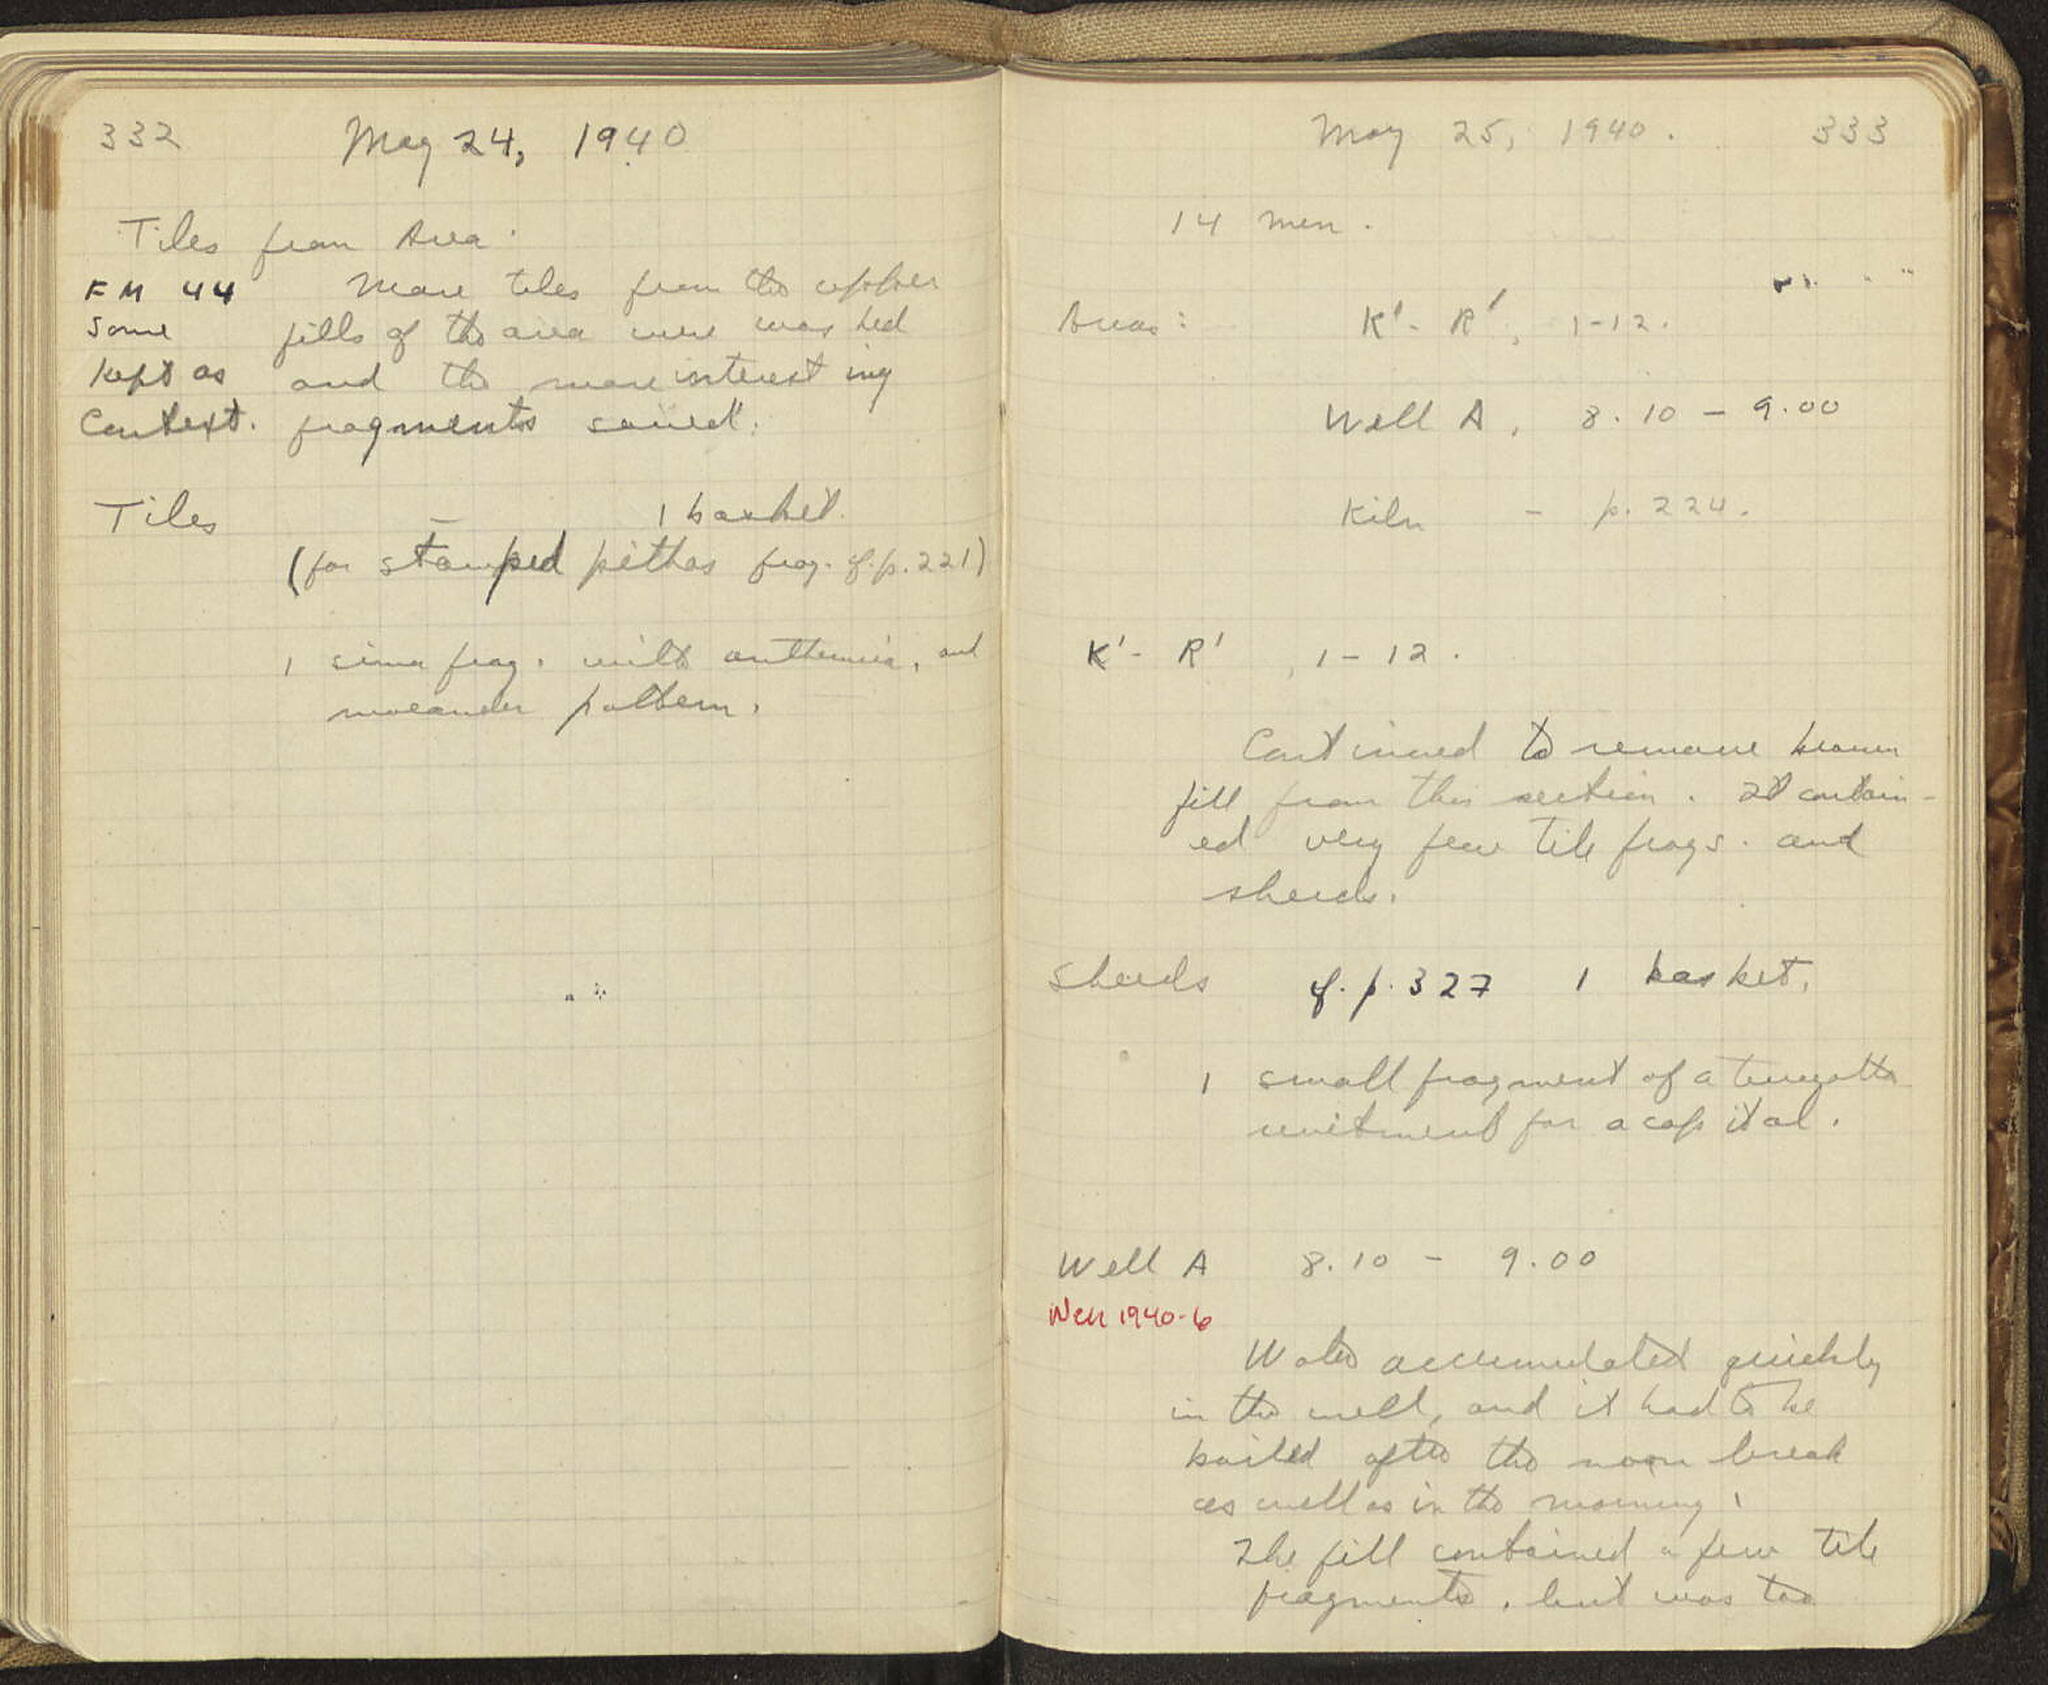 332 May 24, 1940
Tiles from Area.
FM 44 More tiles from the upper
Some fills of the area were washed
Kept as and the more interesting
Context. fragments saved.
Tiles — 1 basket.
(for stamped pithos frag. cf. p. 221)
1 sima frag. with anthemia, and
maeander pattern.
May 25, 1940. 333
14 men.
Areas: K' - R', 1-12.
Well A, 8.10 - 9.00
Kiln - p. 224.
K' - R', 1-12.
Continued to remove brown
fill from this section. It contain-
ed very few tile frags. and
sherds.
Sherds cf. p. 327 1 basket.
1 small fragment of a terracotta
for a capital.
Well A 8.10 - 9.00
Well 1940-6
Water accumulated quickly
in the well, and it had to be
bailed after the noon break
as well as in the morning.
The fill contained a few tile
fragments, but was too